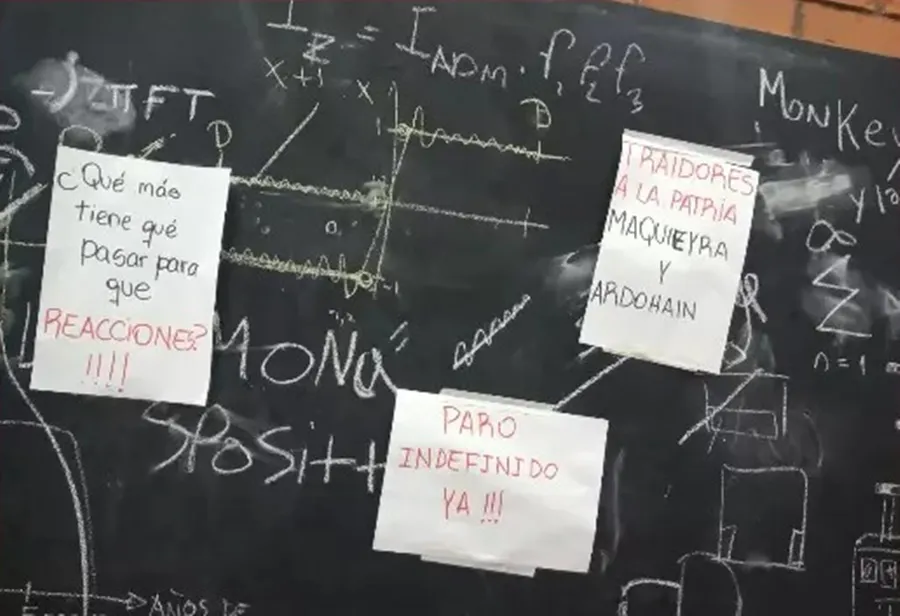 I_z = I_NOM. f_1 f_2 f_3
X+1 X
-) 2πFT
D
D
MONKEY
1
-1
¿Qué más
tiene qué
pasar para
que
REACCIONES?
!!!!
TRAIDORES
A LA PATRIA
MAQUIEYRA
Y
ARDOHAIN
∞
Σ
n=1
MONA"
SPOSITT
PARO
INDEFINIDO
YA !!!
AÑOS DE